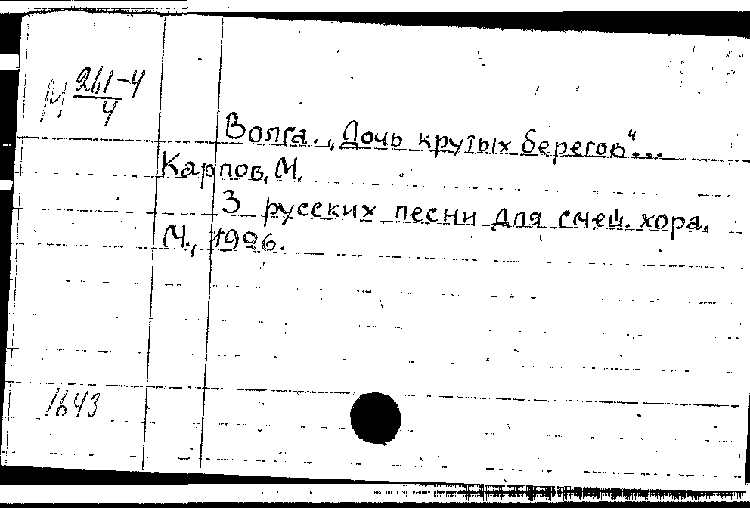 М 261-4/4
Волга. „Дочь крутых берегов“...
Карпов, М.
3 русских песни для смеш. хора.
М., 1926.
1643